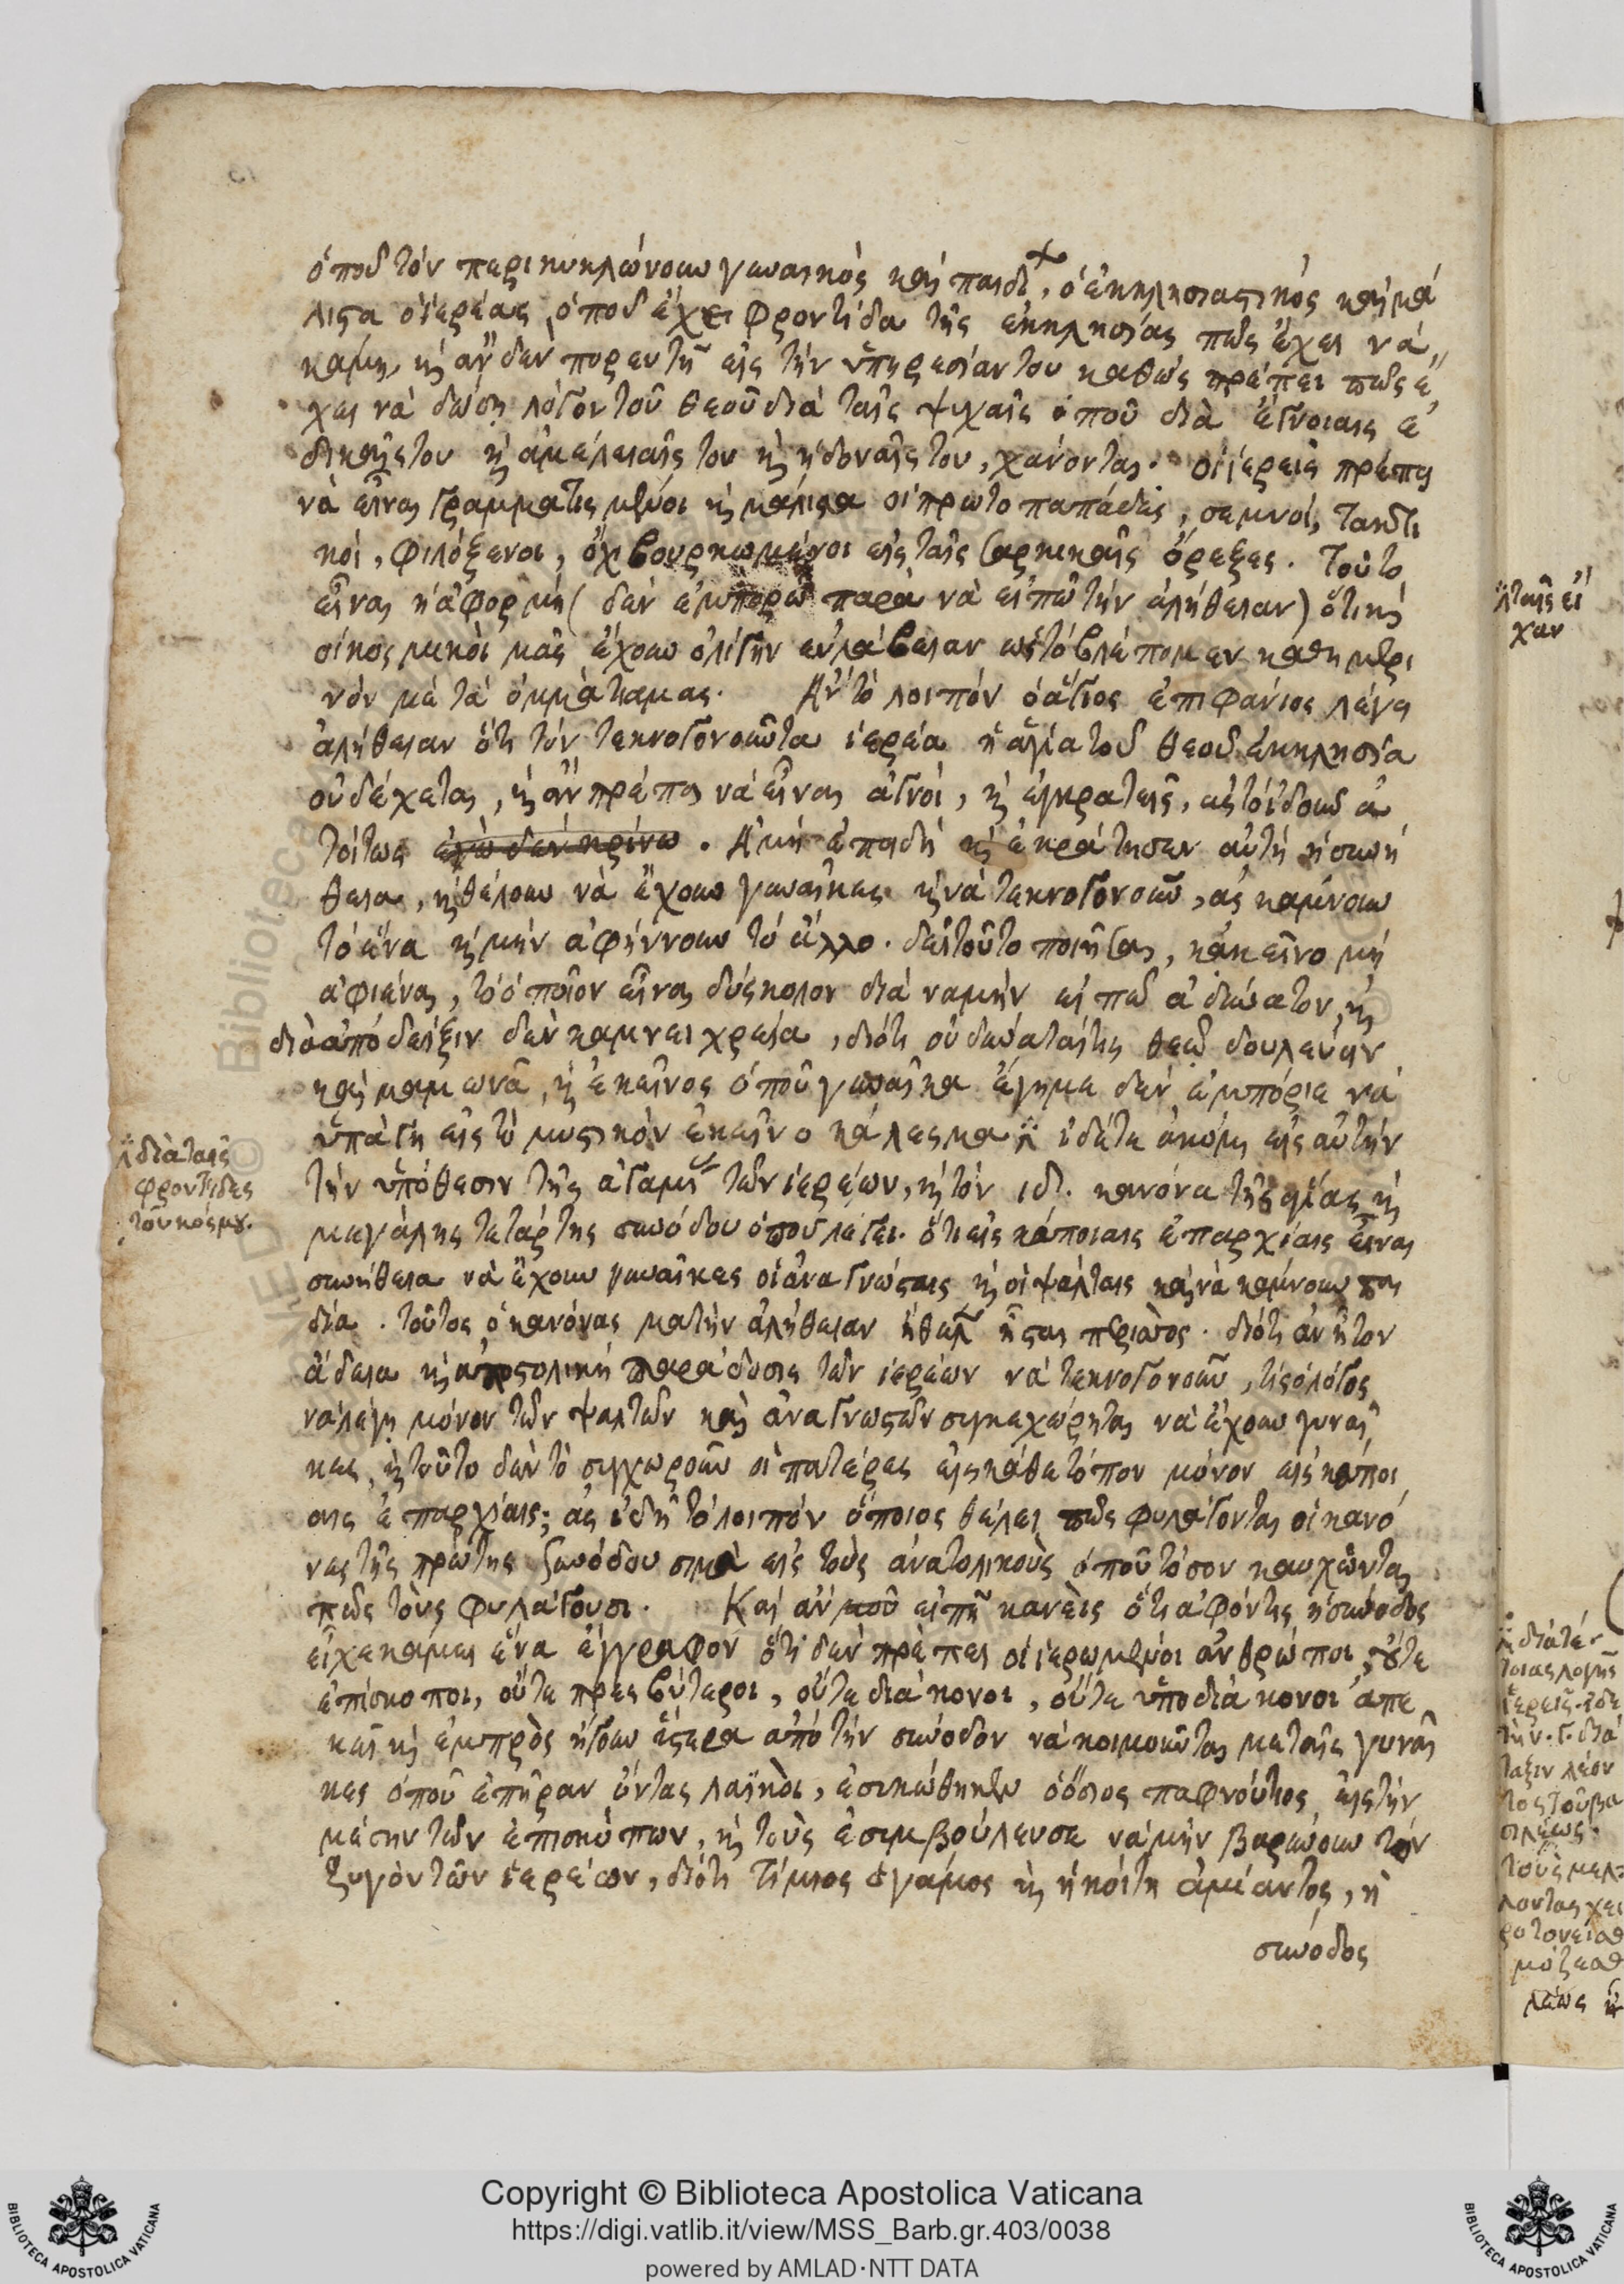 ὁποῦ τὸν περικυκλώνουν γυναικὸς καὶ παιδί, ὁ ἐκκλησιαστικὸς καὶ μά
λιστα ὁ ἱερέας, ὁποῦ ἔχει φροντίδα τῆς ἐκκλησίας πῶς ἔχει νὰ
κάμη, κὶ ἂν δὲν πορευτῆ εἰς τὴν ὑπηρεσίαν του καθὼς πρέπει πῶς ἔ
χει νὰ δώση λόγον τοῦ θεοῦ διὰ ταῖς ψυχαῖς ὁποῦ διὰ ἔγνοιαις ἐ
δικαῖς του κὶ ἀμέλειαῖς του κὶ ἡδοναῖς του, χάνονται. οἱ ἱερεῖς πρέπει
νὰ εἶναι γραμματισμένοι κὶ μάλιστα οἱ πρωτοπαπάδες, σεμνοί, τακτι
κοί, φιλόξενοι, ὄχι βουρκωμένοι εἰς ταῖς σαρκικαῖς ὄρεξες. Τοῦτο
εἶναι ἡ ἀφορμὴ (δὲν ἐμπορῶ παρὰ νὰ εἰπῶ τὴν ἀλήθειαν) ὅτι κὶ
οἱ κοσμικοὶ μᾶς ἔχουν ὀλίγην εὐλάβειαν ὡς τὸ βλέπομεν καθημερι
νὸν μὲ τὰ ὀμμάτια μας. Αὐτὸ λοιπὸν ὁ ἅγιος ἐπιφάνιος λέγει
ἀλήθειαν ὅτι τὸν τεκνογονοῦντα ἱερέα ἡ ἁγία τοῦ θεοῦ ἐκκλησία
οὐ δέχεται, κὶ ἂν πρέπει νὰ εἶναι ἁγνοί, κὶ ἐγκρατεῖς, ἂς τὸ ἰδοῦν ἀ
τοί τως ἐγὼ δὲν κρίνω. Ἀμὴ ἐπειδὴ κὶ ἐκράτησεν αὐτὴ ἡ συνή
θεια, κὶ θέλουν νὰ ἔχουν γυναῖκες κὶ νὰ τεκνογονοῦν, ἂς κάμνουν
τὸ ἕνα κὶ μὴν ἀφήννουν τὸ ἄλλο. δεῖ τοῦτο ποιῆσαι, κἀκεῖνο μὴ
ἀφιέναι, τὸ ὁποῖον εἶναι δύσκολον διὰ να μὴν εἰπῶ ἀδύνατον, κὶ
διὰ ἀπόδειξιν δὲν κάμνει χρεία, διότι οὐ δύναταί τις θεῷ δουλεύειν
καὶ μαμωνᾶ, κὶ ἐκεῖνος ὁποῦ γυναῖκα ἔγημε δὲν ἐμπόριε νὰ
ὑπάγη εἰς τὸ μυστικὸν ἐκεῖνο κάλεσμα ἰδέτε ἀκόμη εἰς αὐτὴν
διὰ ταῖς
φροντίδες
τοῦ κόσμου.
τὴν ὑπόθεσιν τῆς ἀγαμίας τῶν ἱερέων, κὶ τὸν ιδ. κανόνα τῆς ἁγίας κὶ
μεγάλης τετάρτης συνόδου ὁποῦ λέγει. ὅτι εἰς κάποιαις ἐπαρχίαις εἶναι
συνήθεια νὰ ἔχουν γυναῖκες οἱ ἀναγνώσταις κὶ οἱ ψάλταις καὶ νὰ κάμνουν παι
δία. τοῦτος ὁ κανόνας μὰ τὴν ἀλήθειαν ἤθελε ἦσται περισσός. διότι ἂν ἦτον
ἄδεια κὶ ἀποστολικὴ παράδοσις τῶν ἱερέων νὰ τεκνογονοῦν, τίς ὁ λόγος
νὰ λέγη μόνον τῶν ψαλτῶν καὶ ἀναγνωστῶν συγκεχώρηται νὰ ἔχουν γυναῖ
κες, κὶ τοῦτο δὲν τὸ συγχωροῦν οἱ πατέρες εἰς κάθε τόπον μόνον εἰς κάποι
αις ἐπαρχίαις; ἂς ἰδῆ τὸ λοιπὸν ὅποιος θέλει πῶς φυλάγονται οἱ κανό
νες τῆς πρώτης συνόδου σιμὰ εἰς τοὺς ἀνατολικοὺς ὁποῦ τόσον καυχῶνται
πῶς τοὺς φυλάγουσι. Καὶ ἂν μοῦ εἰπῆ κανεὶς ὅτι ἀφόντις ἡ σύνοδος
εἶχε κάμει ἕνα ἔγγραφον ὅτι δὲν πρέπει οἱ ἱερωμένοι ἀνθρώποι, οὔτε
ἐπίσκοποι, οὔτε πρεσβύτεροι, οὔτε διάκονοι, οὔτε ὑποδιάκονοι ἀπε
κεῖ κὶ ἐμπρὸς ἤγουν ὕστερα ἀπὸ τὴν σύνοδον νὰ κοιμοῦνται με ταῖς γυναῖ
κες ὁποῦ ἐπῆραν ὄντας λαϊκοὶ, ἐσικώθηκεν ὁ ὅσιος παφνούτιος εἰς τὴν
μέσην τῶν ἐπισκόπων, κὶ τοὺς ἐσυμβούλευσε νὰ μὴν βαρύνουν τὸν
ζυγὸν τῶν ἱερέων, διότι τίμιος ὁ γάμος κὶ ἡ κοίτη ἀμίαντος, ἡ
σύνοδος
Copyright © Biblioteca Apostolica Vaticana
https://digi.vatlib.it/view/MSS_Barb.gr.403/0038
powered by AMLAD·NTT DATA